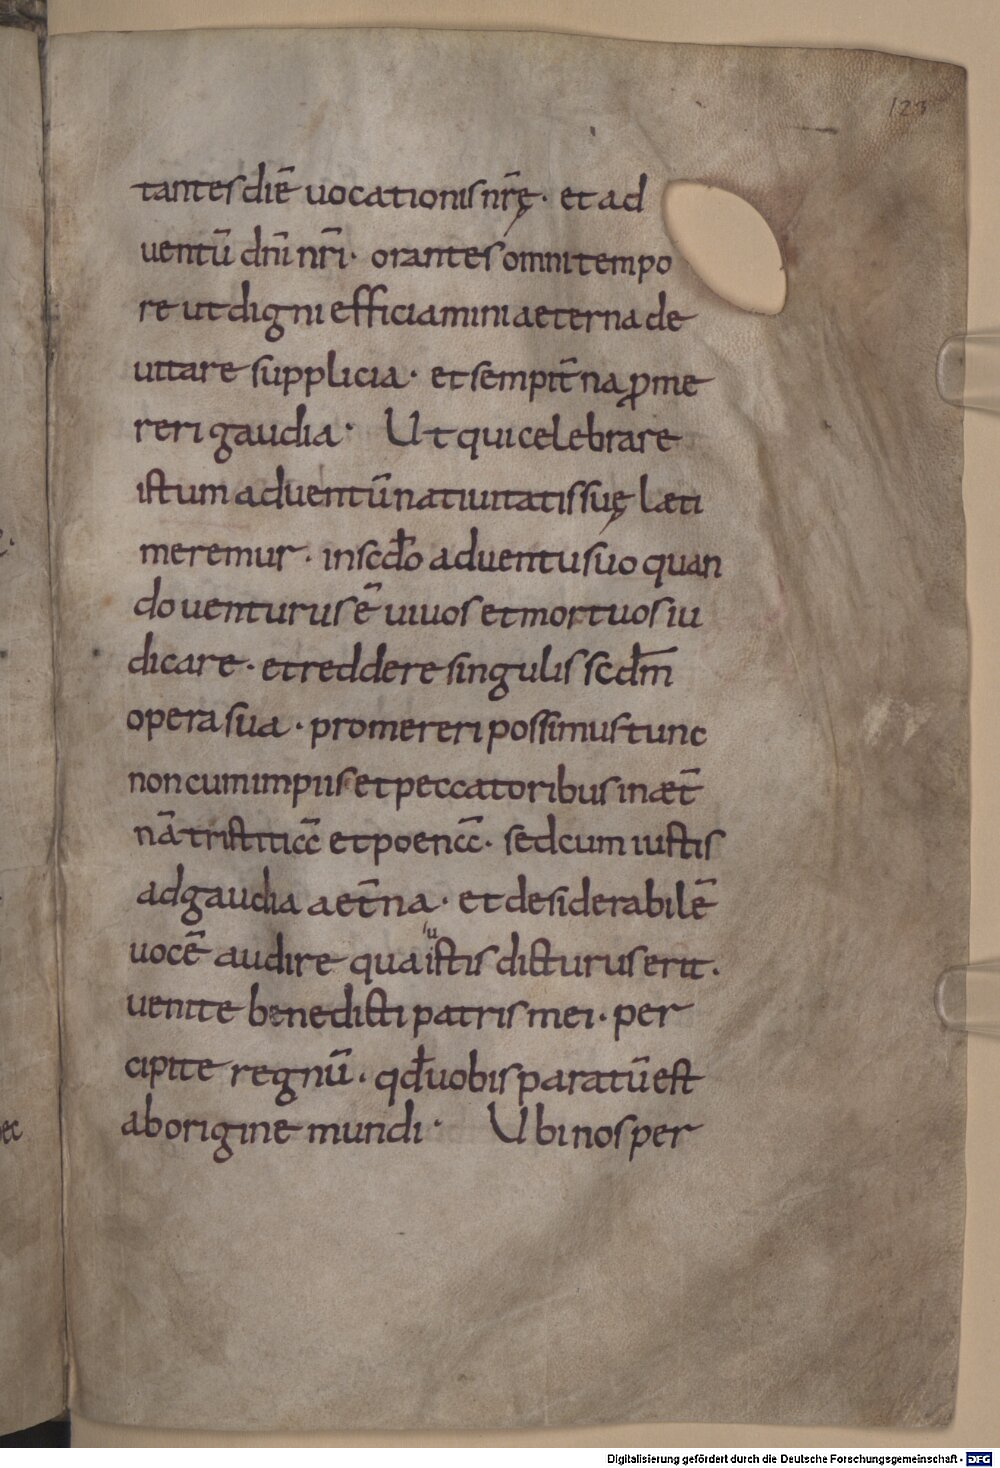 123
tantes diē uocationis nr̄ę · et ad
uentū dn̄i nr̄i · orantes omni tempo
re ut digni efficiamini aeterna de
uitare supplicia · et sempit̄na ꝓme
reri gaudia · Ut qui celebrare
istum aduentū natiuitatis suę laeti
meremur · in scd̄o aduentu suo quan
do uenturus ē uiuos et mortuos iu
dicare · et reddere singulis scd̄m
opera sua · promereri possimus tunc
non cum impiis et peccatoribus in æt̄
nā tristitiā et poenā · sed cum iustis
ad gaudia aet̄na · et desiderabilē
uocē audire qua iustis dicturus erit ·
uenite benedicti patris mei · per
cipite regnū · qd̄ uobis paratū est
ab origine mundi · Ubi nos per
Digitalisierung gefördert durch die Deutsche Forschungsgemeinschaft - DFG